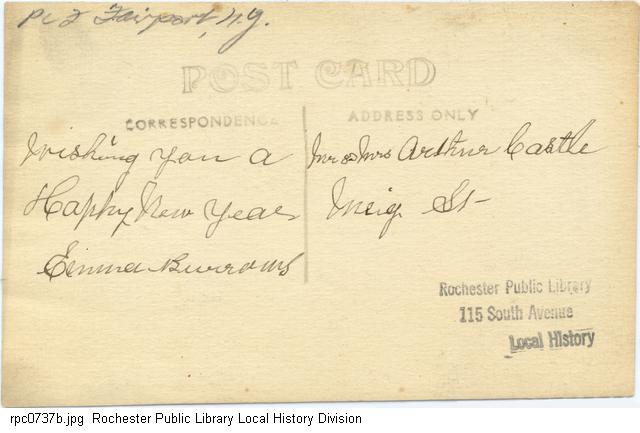 Pc 2 Fairport, N.Y.
POST CARD
CORRESPONDENCE
ADDRESS ONLY
Wishing you a
Happy New Year
Emma Burrows
Mr & Mrs Arthur Castle
Meig St
Rochester Public Library
115 South Avenue
Local History
rpc0737b.jpg Rochester Public Library Local History Division